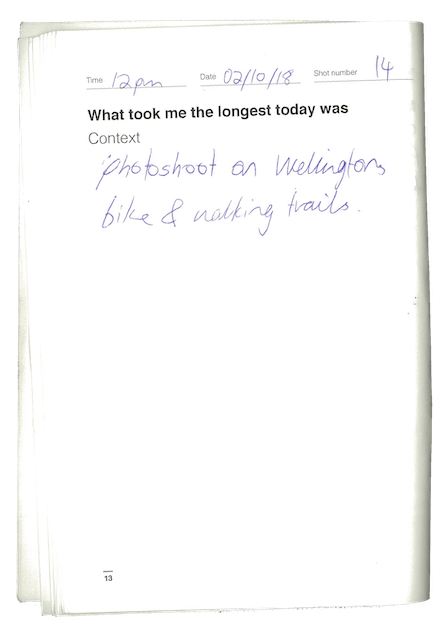 Time 12pm Date 02/10/18 Shot number 14
What took me the longest today was
Context
photoshoot on Wellingtons
bike & walking trails.
13